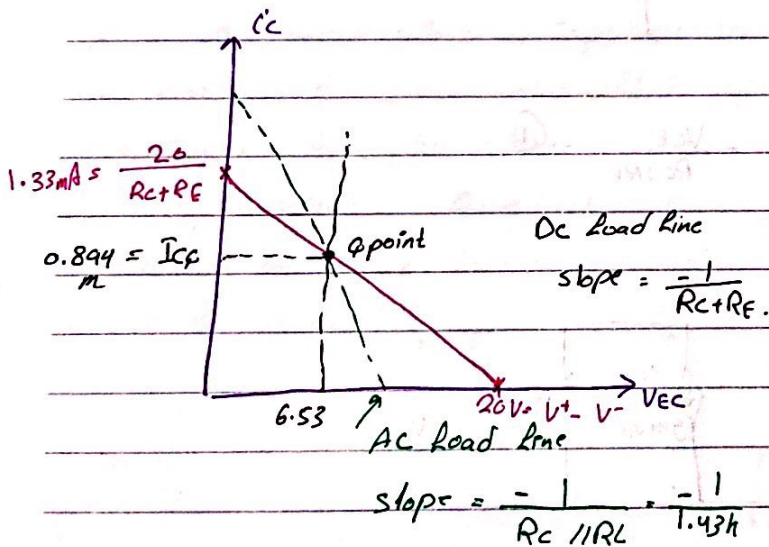 iC
1.33mA = 20 / RC+RE
0.894 m = ICQ
Qpoint
DC Load Line
slope = -1 / RC+RE.
6.53
20V = V+ - V-
VEC
AC Load Line
slope = -1 / RC //RL = -1 / 1.43k